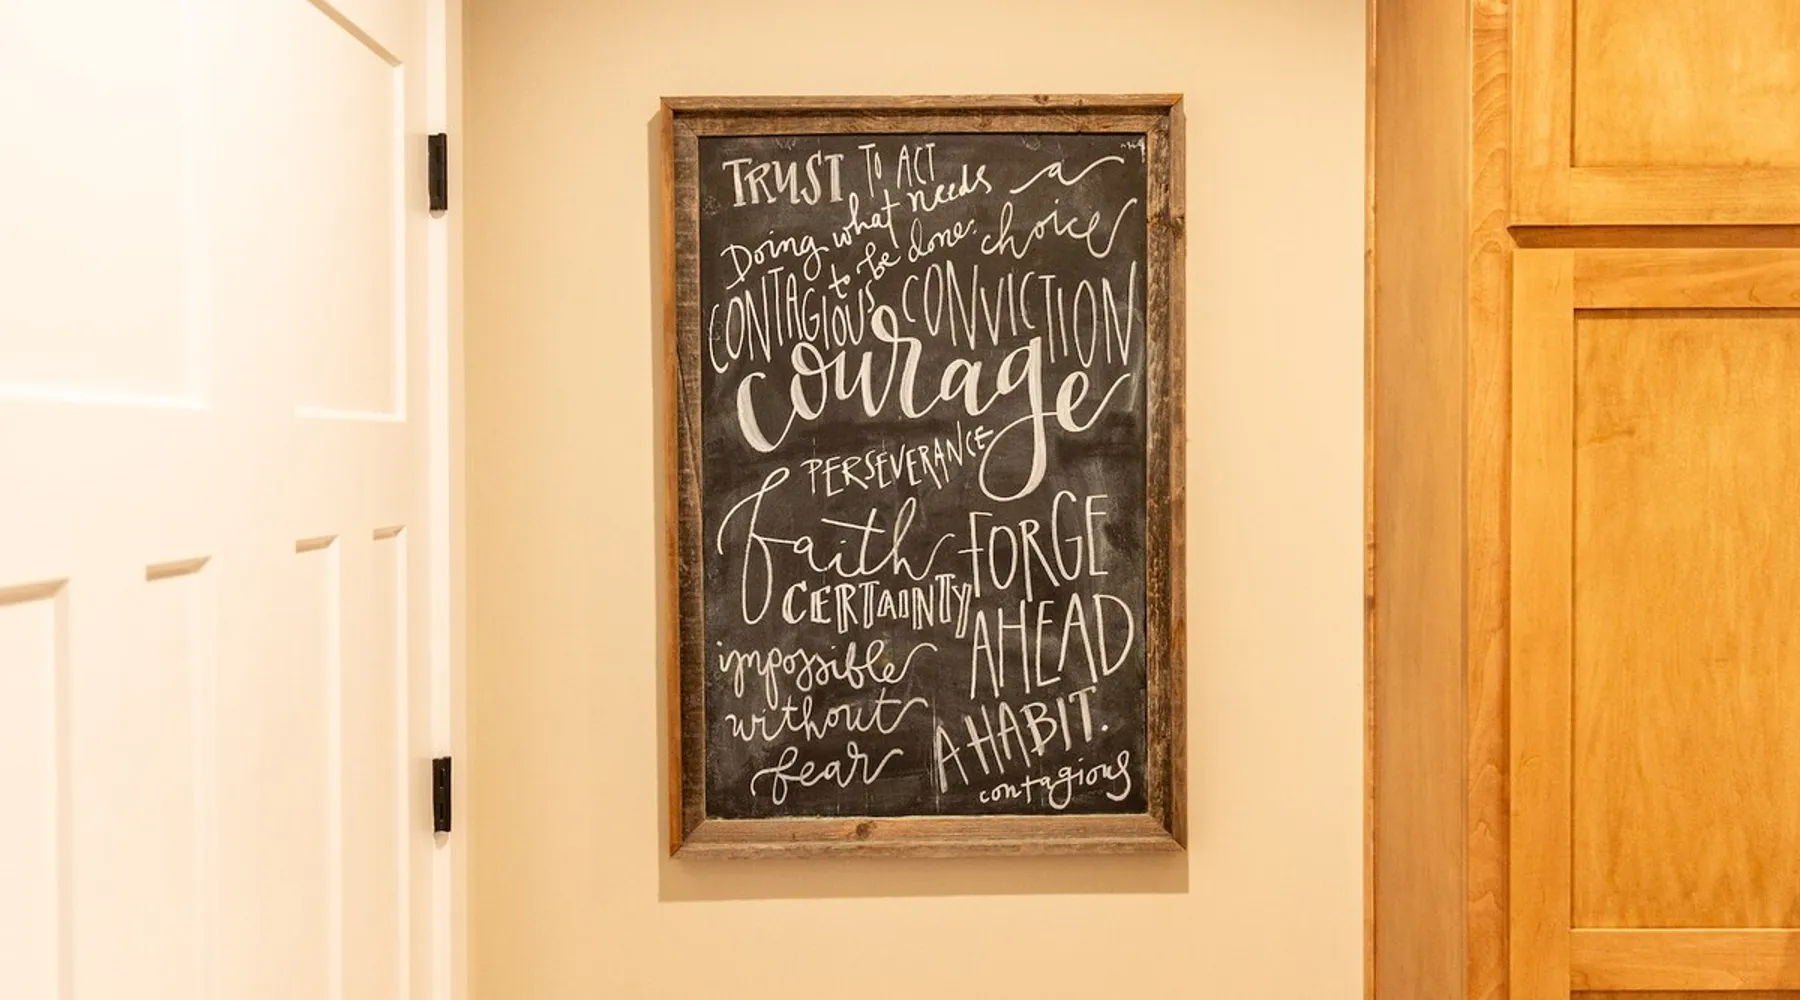 TRUST TO ACT
Doing what needs to be done.
a choice
CONTAGIOUS CONVICTION
courage
PERSEVERANCE
faith
CERTAINTY
FORGE AHEAD
impossible
without
fear
A HABIT.
contagious